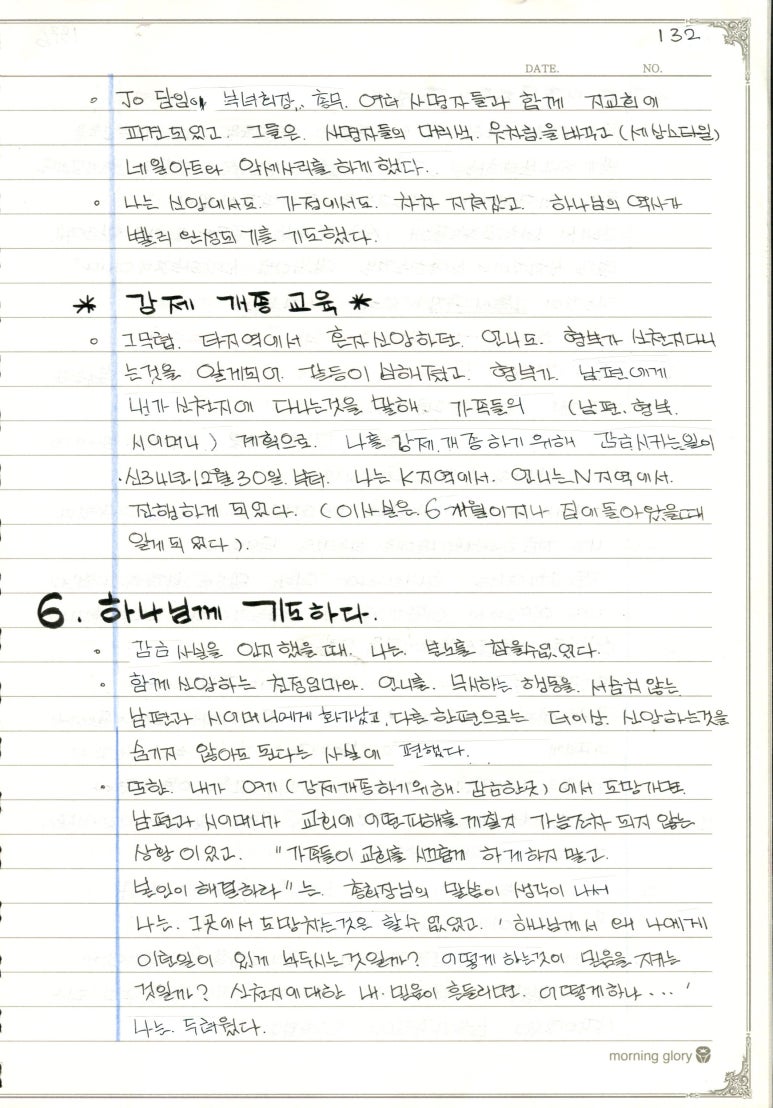 132
DATE. NO.
◦ Jo 담임이 부녀회장, 총무. 여러 사명자들과 함께 지교회에
파견되었고. 그들은. 사명자들의 머리색. 옷차림을 바꾸고 (세상스타일)
네일아트와 악세사리를 하게 했다.
◦ 나는 신앙에서도. 가정에서도. 차차 지쳐갔고. 하나님의 역사가
빨리 완성되기를 기도했다.
* 강제 개종 교육 *
◦ 그무렵. 타지역에서 혼자 신앙하던. 언니도. 형부가 신천지다니
는것을 알게되어 갈등이 심해졌고. 형부가. 남편에게
내가 신천지에 다니는것을 말해. 가족들의 (남편. 형부.
시어머니) 계획으로. 나를 강제.개종하기 위해 감금시키는일이
신34년12월 30일. 부터. 나는 K지역에서. 언니는 N지역에서.
진행하게 되었다. (이사실은 6개월이지나 집에 돌아왔을때
알게 되었다).
6. 하나님께 기도하다.
◦ 감금 사실을 인지했을 때. 나는. 분노를 참을수없었다.
◦ 함께 신앙하는 친정엄마와. 언니를. 무시하는 행동을. 서슴치 않는
남편과 시어머니에게 화가났고, 다른 한편으로는 더이상. 신앙하는것을
숨기지 않아도 된다는 사실에 편했다.
◦ 또한. 내가 여기 (강제개종하기위해. 감금한곳) 에서 도망가면.
남편과 시어머니가 교회에 어떤피해를 끼칠지 가늠조차 되지 않는
상황이었고. "가족들이 교회를 시끄럽게 하게하지 말고.
본인이 해결하라"는. 총회장님의 말씀이 생각이 나서
나는. 그곳에서 도망치는것은 할수 없었고. '하나님께서 왜 나에게
이런일이 있게 놔두시는것일까? 어떻게 하는것이 믿음을 지키는
것일까? 신천지에대한 내.믿음이 흔들리면. 어떻게하나...'
나는. 두려웠다.
morning glory